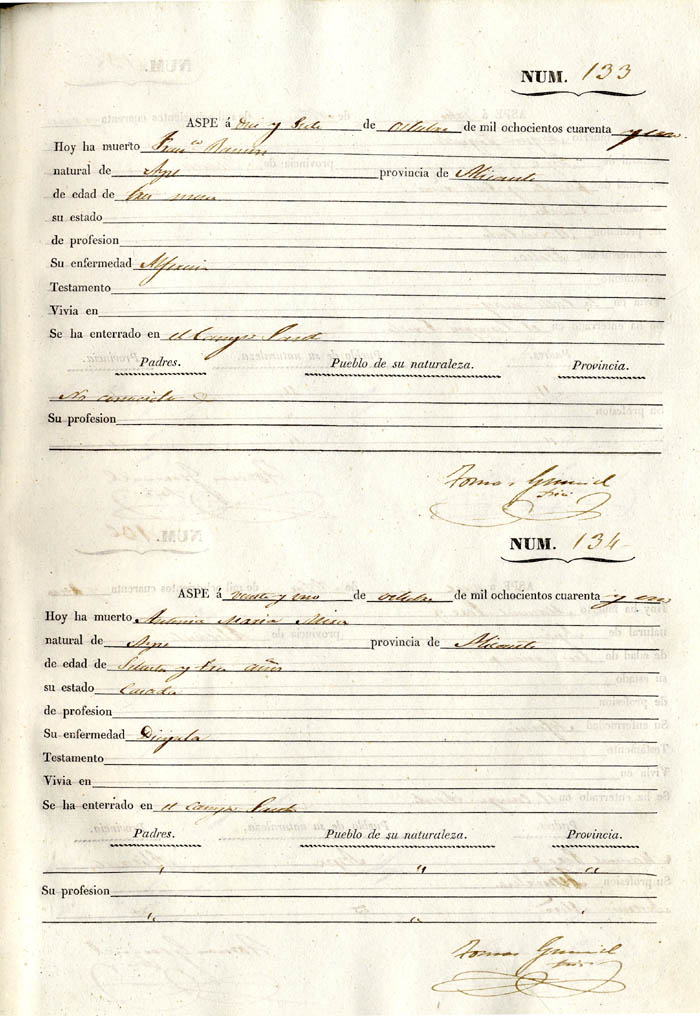 NUM. 133
ASPE á Diez y Siete de Octubre de mil ochocientos cuarenta y uno.
Hoy ha muerto Fran.ca Ramon
natural de Aspe provincia de Alicante
de edad de tres meses
su estado
de profesion
Su enfermedad Alferecia
Testamento
Vivia en
Se ha enterrado en el Campo Santo
Padres. Pueblo de su naturaleza. Provincia.
No conocidos
Su profesion
Tomas
NUM. 134
ASPE á veinte y uno de octubre de mil ochocientos cuarenta y uno
Hoy ha muerto Antonia Maria Mira
natural de Aspe provincia de Alicante
de edad de Setenta y tres años
su estado Casada
de profesion
Su enfermedad
Testamento
Vivia en
Se ha enterrado en el campo Santo
Padres. Pueblo de su naturaleza. Provincia.
" " "
Su profesion
" " "
Tomas